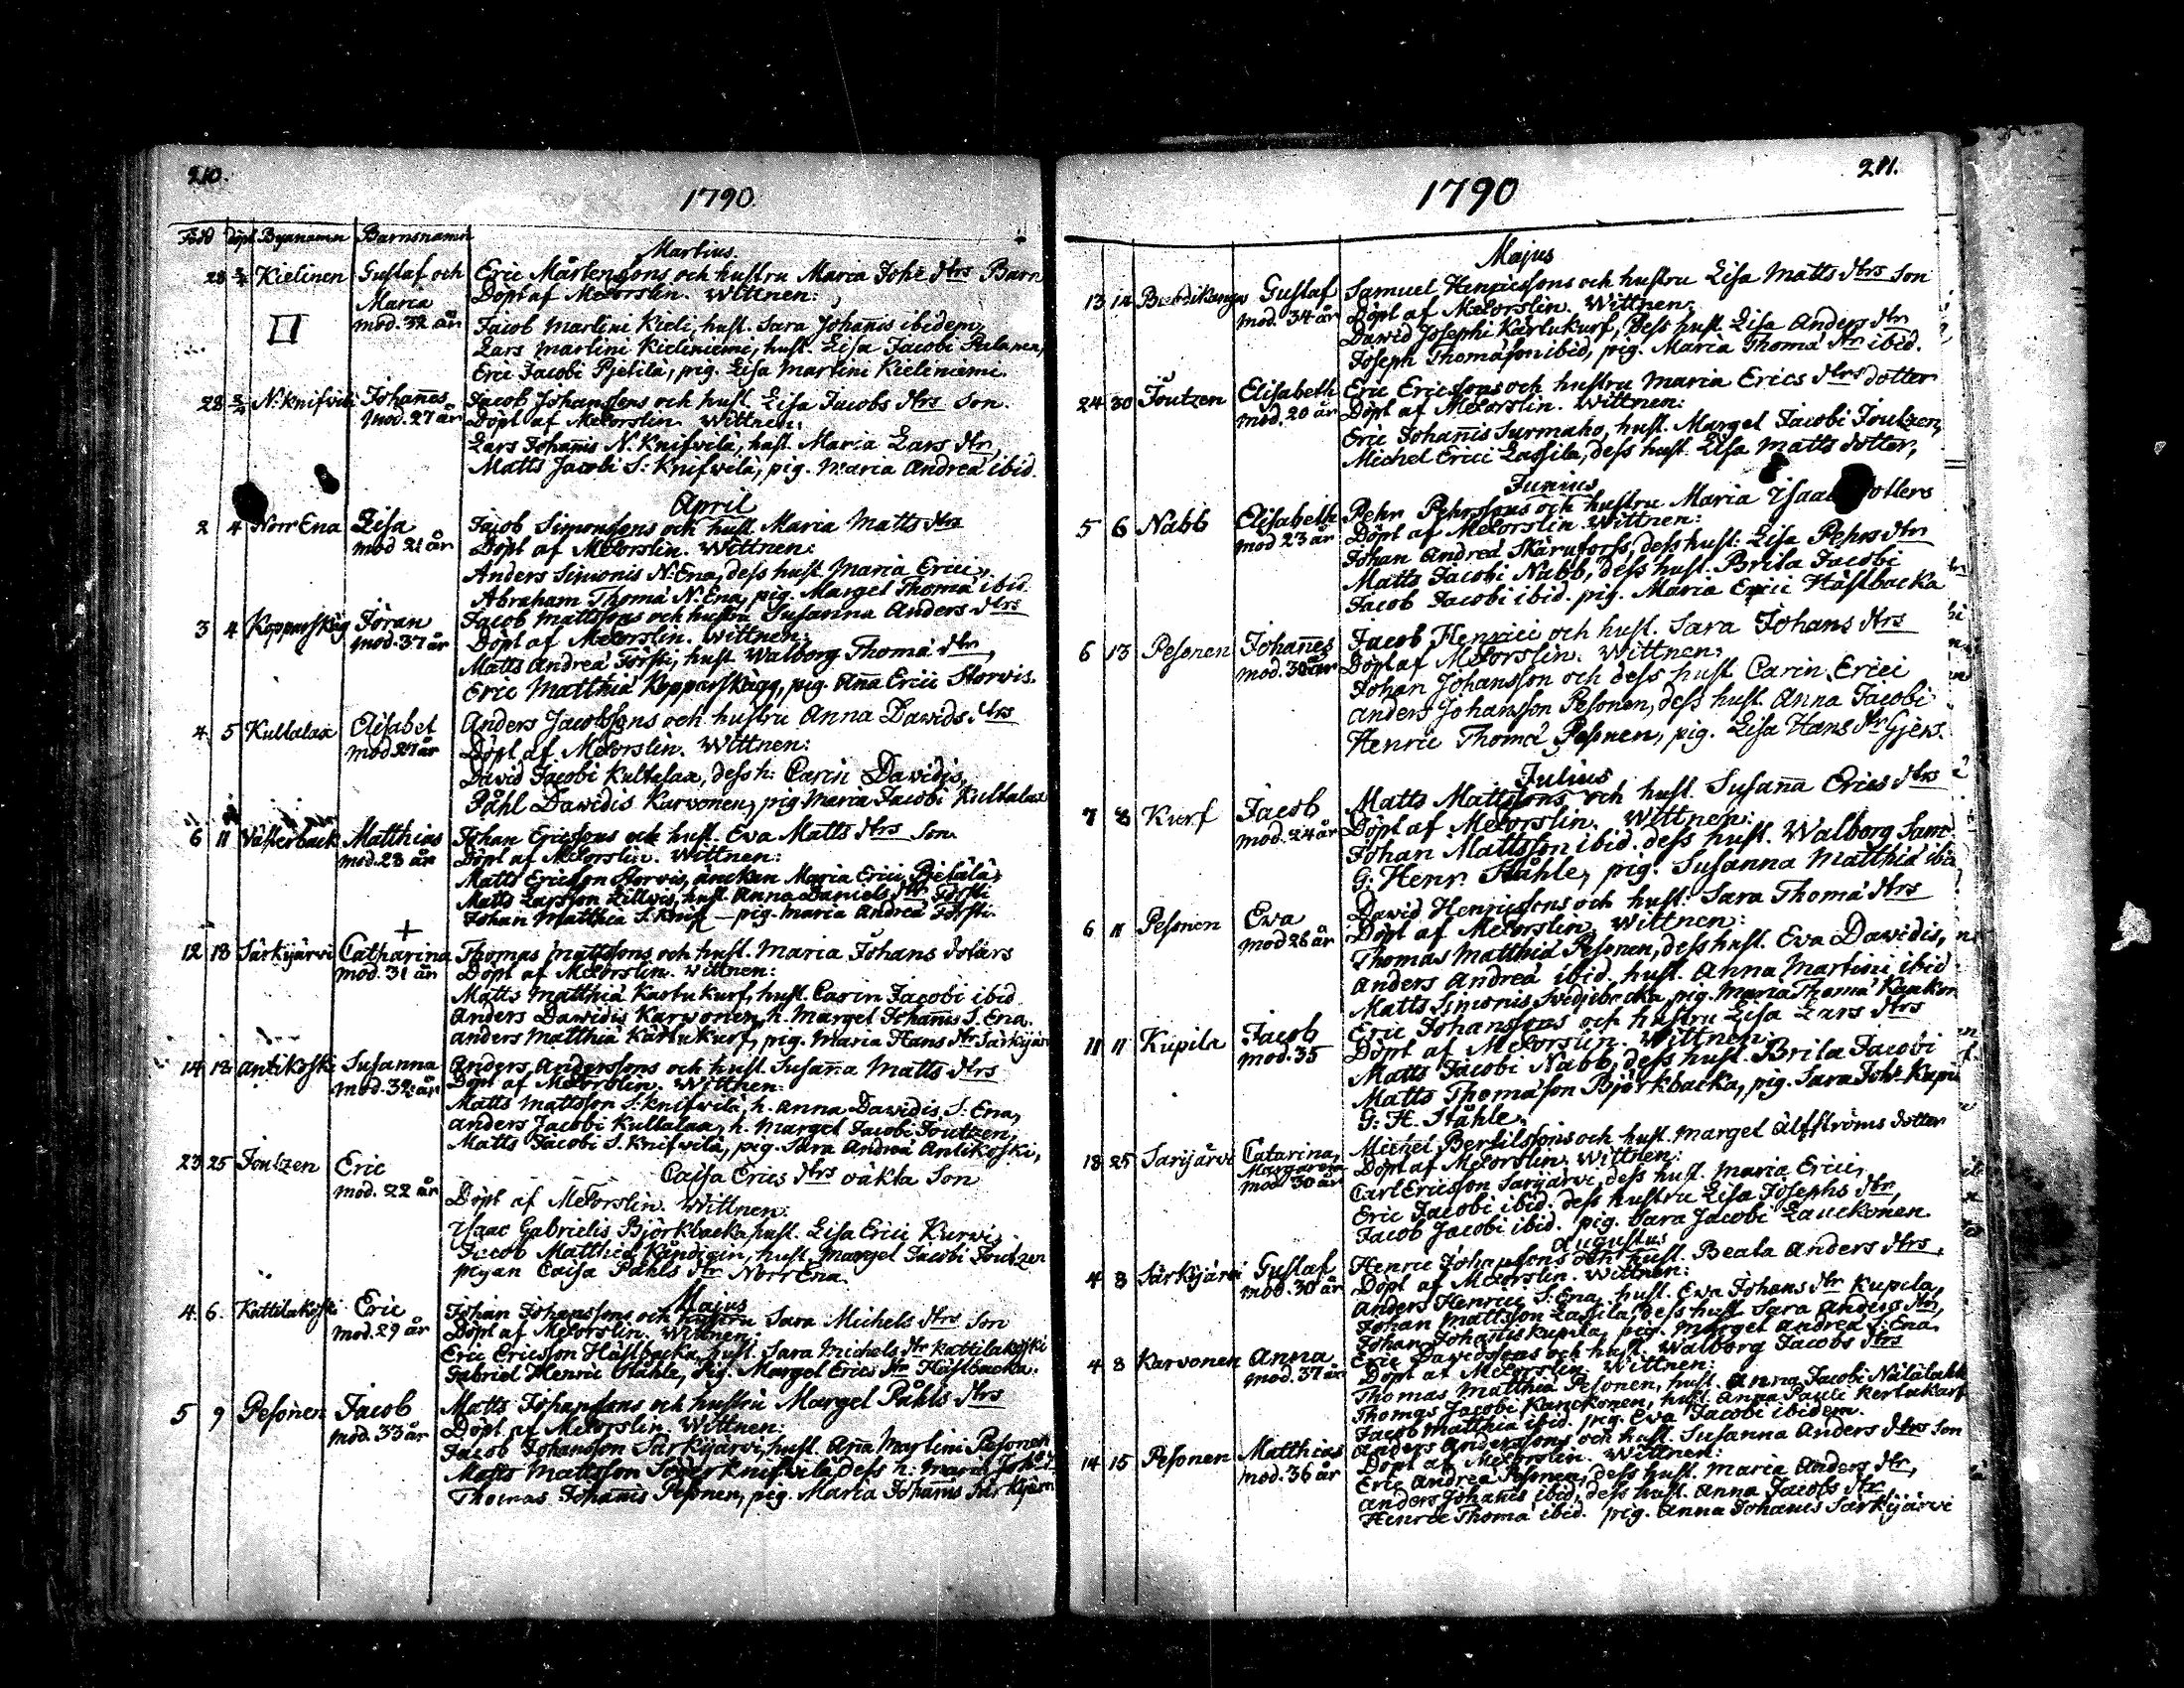 210.
1790
Född döpt Byanamn Barnsnamn
Martius
28 2/4 Kielinen Gustaf och Eric Mårtensons och hustru Maria Joh: dtrs Barn
Maria Döpt af MeTorslin. Wittnen:
mod. 32 år Jacob Martini Kieli, hust. Sara Johan̄is ibidem,
Lars Martini Kieliniemi, hust. Lisa Jacobi
Eric Jacobi Pjelila, pig. Lisa Martini Kieliniemi.
28 2/4 N: Knifvilä Johan̄es Jacob Johanssons och hust. Lisa Jacobs dtrs Son.
mod. 27 år Döpt af MeTorslin. Wittnen:
Lars Johan̄is N. Knifvila, hust. Maria Lars dtr,
Matts Jacobi S: Knifvila, pig. Maria Andreä ibid.
April
2 4 Norr Ena Lisa Jacob Simonssons och hust. Maria Matts dtrs
mod 21 år Döpt af MeTorslin. Wittnen:
Anders Simonis N: Ena, dess hust. Maria Erici,
Abraham Thomä N: Ena, pig. Margel Thomä ibid
3 4 Kopparskäg Jöran Jacob Mattssons och hustru Susanna Anders dtrs
mod. 37 år Döpt af MeTorslin. Wittnen:
Matts Andreä Försti, hust. Walborg Thomä dtr,
Eric Matthiä Kopparskägg, pig. An̄a Erici Storvis.
4 5 Kultalax Elisabet Anders Jacobssons och hustru Anna Davids dtrs
mod 27 år Döpt af MeTorslin. Wittnen:
David Jacobi Kultalax, dess h: Carin Davidis,
Påhl Dawidis Karvonen, pig Maria Jacobi Kultalax
6 11 Västerback Matthias Johan Ericssons och hust. Eva Matts dtrs Son.
mod. 23 år Döpt af MeTorslin. Wittnen:
Matts Ericsson Storvis, änckan Maria Erici Pjelälä,
Matts Larsson Lillvis, hust. Anna Daniels dtr Försti
Johan Matthiä S. Knif – pig. Maria Andreä Försti.
12 18 Särkijärvi Catharina Thomas Mattssons och hust. Maria Johans doters
mod. 31 år Döpt af MeTorslin. Wittnen:
Matts Matthiä Kartukurf, hust. Carin Jacobi ibid
Anders Dawidis Karwonen, h. Margel Johan̄is S. Ena.
Anders Matthiä Kärtukurf, pig. Maria Hans dtr Särkijär
14 18 Antikoski Susanna Anders Anderssons och hust. Susan̄a Matts dtrs
mod. 32 år Döpt af MeTorslin. Wittnen:
Matts Mattsson S: Knifvilä, h. Anna Dawidis S: Ena,
Anders Jacobi Kultalax, h. Margel Jacobi Joutzen,
Matts Jacobi S. Knifvilä, pig. Sara Andreä Antikoski,
23 25 Joutzen Eric Caisa Erics dtrs oäkta Son
mod. 22 år Döpt af MeTorslin. Wittnen:
Isaac Gabrielis Björkbacka, hust. Lisa Erici Kurvi,
Jacob Matthiä Kändigin, hust. Margel Jacobi Joutzen
pigan Caisa Påhls dtr Norr Ena.
Majus
4 6. Kattilakoski Eric Johan Johanssons och hustru Sara Michels dtrs Son
mod. 29 år Döpt af MeTorslin. Wittnen:
Eric Ericsson Hästbacka, hust. Sara Michels dtr Kattilakoski
Gabriel Henric Ståhle, Pig. Margel Erics dtr Hästbacka.
5 9 Pesonen Jacob Matts Johanssons och hustru Margel Påhls dtrs
mod. 33 år Döpt af MeTorslin. Wittnen:
Jacob Johansson Särkijärvi, hust. An̄a Martini Pesonen
Matts Mattsson Söderknifvilä, dess h: Maria Joh:
Thomas Johan̄is Pesonen, pig. Maria Johan̄is Särkijärv
211.
1790
Majus
13 14 Gustaf Samuel Henricssons och hustru Lisa Matts dtrs Son
mod. 34 år Döpt af MeTorslin. Wittnen:
Dawid Josephi Kärtukurf, dess hust. Lisa Anders dtr
Joseph Thomäson ibid, pig. Maria Thomä dtr ibid.
24 30 Joutzen Elisabeth Eric Ericssons och hustru Maria Erics dtrs dotter
mod. 20 år Döpt af MeTorslin. Wittnen:
Eric Johan̄is Surmaho, hust. Margel Jacobi Joutzen,
Michel Erici Lassila, dess hust. Lisa Matts dotter,
Junius
5 6 Nabb Elisabeth Pehr Pehrssons och hustru Maria Isaac dotters
mod 23 år Döpt af MeTorslin. Wittnen:
Johan Andreä Skärufors, dess hust: Lisa Pehrs dtr
Matts Jacobi Nabb, dess hust. Brita Jacobi
Jacob Jacobi ibid. pig. Maria Erici Hästbacka
6 13 Pesonen Johan̄es Jacob Henrici och hust. Sara Johans dtrs
mod. 30 år Döpt af MeTorslin. Wittnen:
Johan Johansson och dess hust Carin Erici
Anders Johansson Pesonen, dess hust. Anna Jacobi
Henric Thomä Pesonen, pig. Lisa Hans dtr Gjers.
Julius
7 8 Kurf Jacob Matts Mattssons och hust. Susan̄a Erics dtrs
mod. 24 år Döpt af MeTorslin. Wittnen:
Johan Mattsson ibid. dess hust. Walborg Sam
G: Henr. Ståhle, pig. Susanna Matthiä ibid
6 11 Pesonen Eva David Henricssons och hust: Sara Thomä dtrs
mod 26 år Döpt af MeTorslin. Wittnen:
Thomas Matthiä Pesonen, dess hust. Eva Dawidis,
Anders Andreä ibid. hust. Anna Martini ibid
Matts Simonis Svedjebacka, pig. Maria Thomä Kaukon
11 11 Kupila Jacob Eric Johanssons och hustru Lisa Lars dtrs
mod. 35 Döpt af MeTorslin. Wittnen:
Matts Jacobi Nabb, dess hust. Brita Jacobi
Matts Thomäson Björkbacka, pig. Sara Joh: Kupi
G: H. Ståhle,
18 25 Sarijärvi Catarina, Michel Bertilssons och hust. Margel Älfströms dotter
Margareta Döpt af MeTorslin. Wittnen:
mod 30 år Carl Ericsson Sarijärvi, dess hust. Maria Erici,
Eric Jacobi ibid. dess hustru Lisa Josephs dtr,
Jacob Jacobi ibid. pig. Sara Jacobi Lauckonen
Augustus
4 8 Särkijärvi Gustaf Henric Johanssons och hust. Beata Anders dtrs,
mod. 30 år Döpt af MeTorslin. Wittnen:
Anders Henrici S: Ena, hust. Eva Johans dtr Kupila,
Johan Mattsson Lassila, dess hust Sara Anders dtr,
Johan Johan̄is Kupila, pig. Margel Andreä S: Ena.
4 8 Karvonen Anna Eric Davidssons och hust. Walborg Jacobs dtrs
mod. 37 år Döpt af MeTorslin. Wittnen:
Thomas Matthiä Pesonen, hust. Anna Jacobi
Thomas Jacobi Kanckonen, hust. Anna Pauli Kertukurf
Jacob Matthiä ibid. pig. Eva Jacobi ibidem.
14 15 Pesonen Matthias Anders Anderssons och hust. Susanna Anders dtrs Son
mod. 36 år Döpt af MeTorslin. Wittnen:
Eric Andreä Pesonen, dess hust. Maria Anders dtr,
Anders Johan̄is ibid, dess hust. Anna Jacobs dtr
Henric Thomä ibid. pig. Anna Johanis Särkijärvi